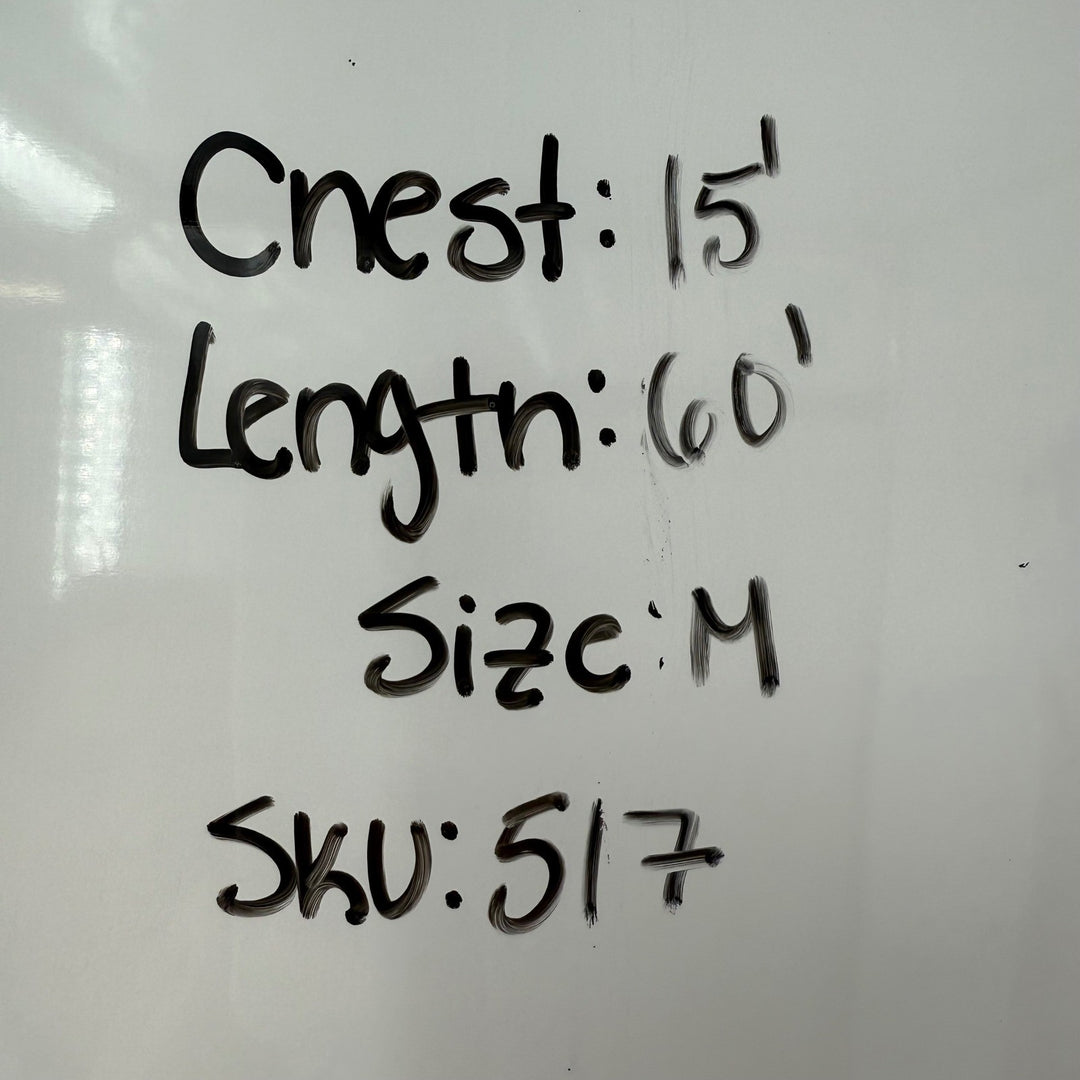 Chest: 15'
Length: 60'
Size: M
SKU: 517